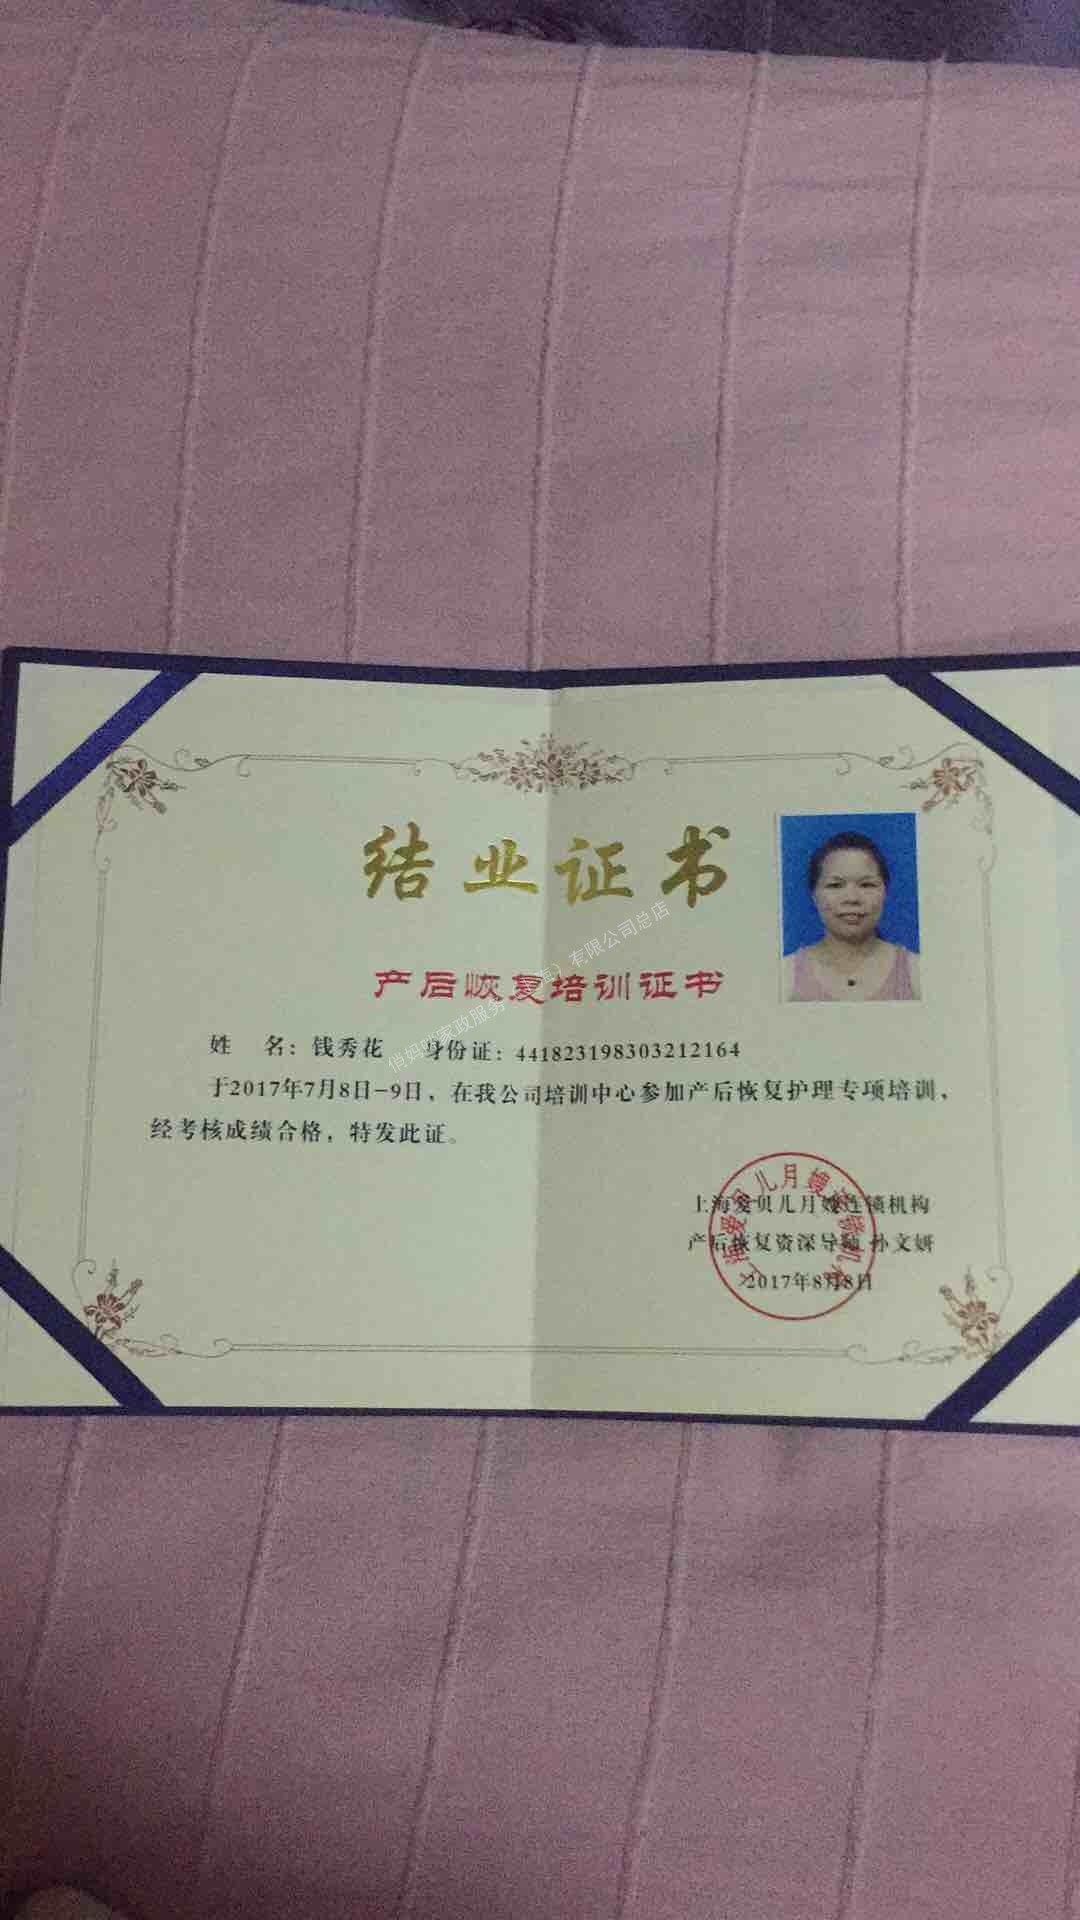 结业证书
产后恢复培训证书
姓 名：钱秀花 身份证：441823198303212164
于2017年7月8日-9日，在我公司培训中心参加产后恢复护理专项培训，
经考核成绩合格，特发此证。
上海爱贝儿月嫂连锁机构
产后恢复资深导师 孙文妍
2017年8月8日
上海爱贝儿月嫂连锁机构
家政服务
有限公司总店